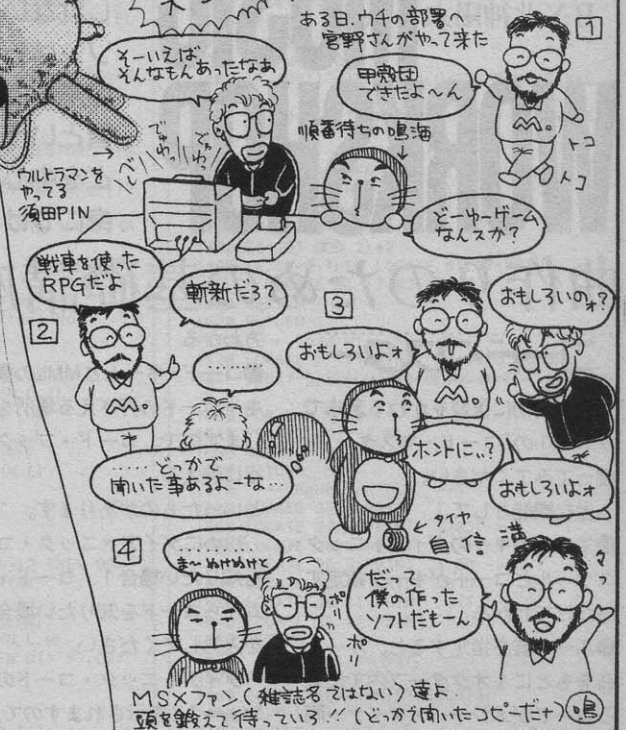 ある日、ウチの部署へ
宮野さんがやって来た
1
甲殻団
できたよ〜ん
トコ
トコ
そーいえば
そんなもんあったなぁ
順番待ちの鳴海
ウルトラマンを
やってる
須田PIN
でゅわっ
でゅわっ
どーゆーゲーム
なんスか?
2
戦車を使った
RPGだよ
斬新だろ?
……どっかで
聞いた事あるよーな…
3
おもしろいのォ?
おもしろいよォ
ホントに..?
おもしろいよォ
タイヤ
4
ま〜ぬけぬけと
ポリ
ポリ
自信満
だって
僕の作った
ソフトだもーん
MSXファン(雑誌名ではない)達よ
頭を鍛えて待っていろ!!(どっかで聞いたコピーだナ)鳴